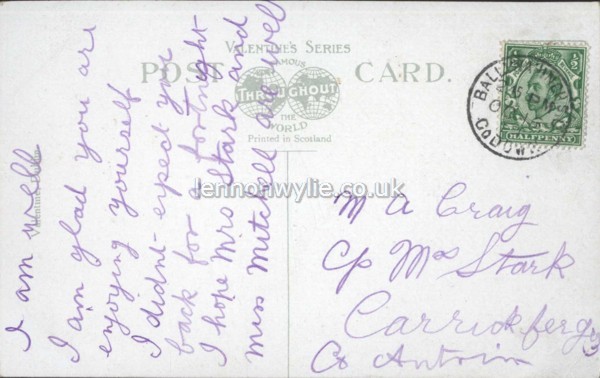 VALENTINE'S SERIES
POST CARD.
FAMOUS
THROUGHOUT
THE
WORLD
Printed in Scotland
HALFPENNY
Co DOWN
I am well
I am glad you are
enjoying yourself
I didnt expect you
back for a fortnight
I hope Mrs Stark and
Miss Mitchell are well
M A Craig
C/o Mrs Stark
Carrickfergus
Co Antrim
lennonwylie.co.uk